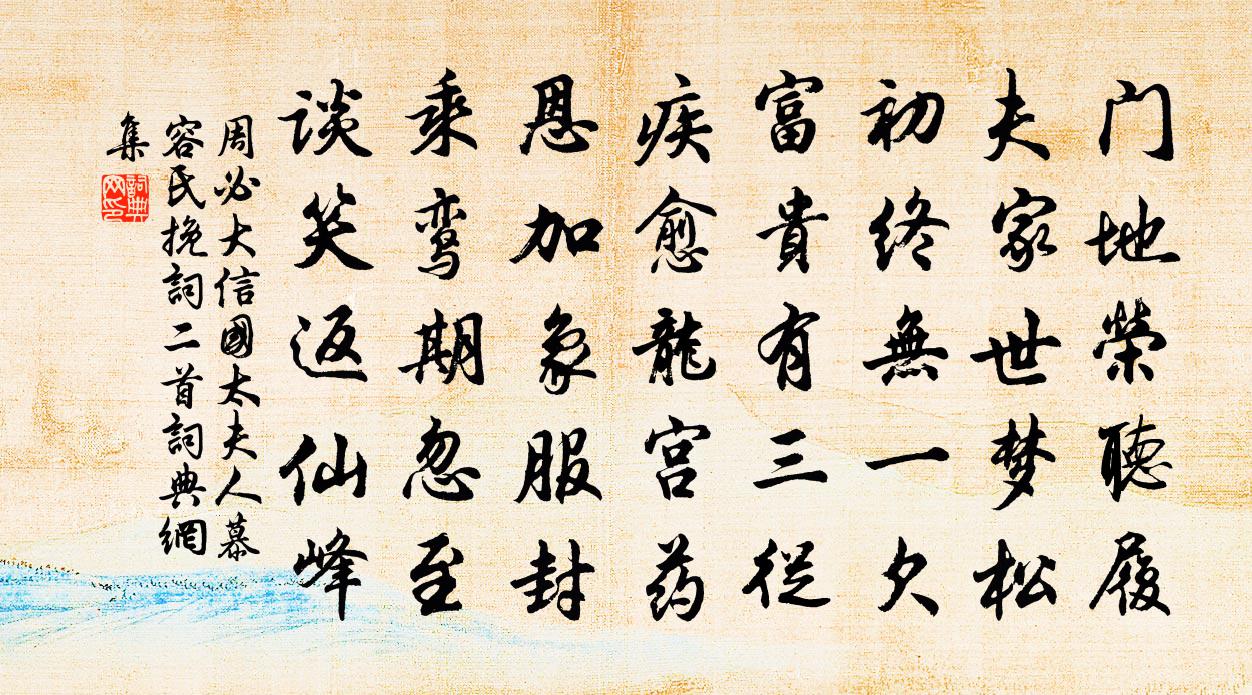 门地榮聽履
夫家世梦松
初终無一欠
富貴有三從
疾愈龍宫药
恩加象服封
乘鸾期忽至
谈笑返仙峰
周必大信國太夫人慕
容氏挽詞二首詞典網
集
詞典
网印